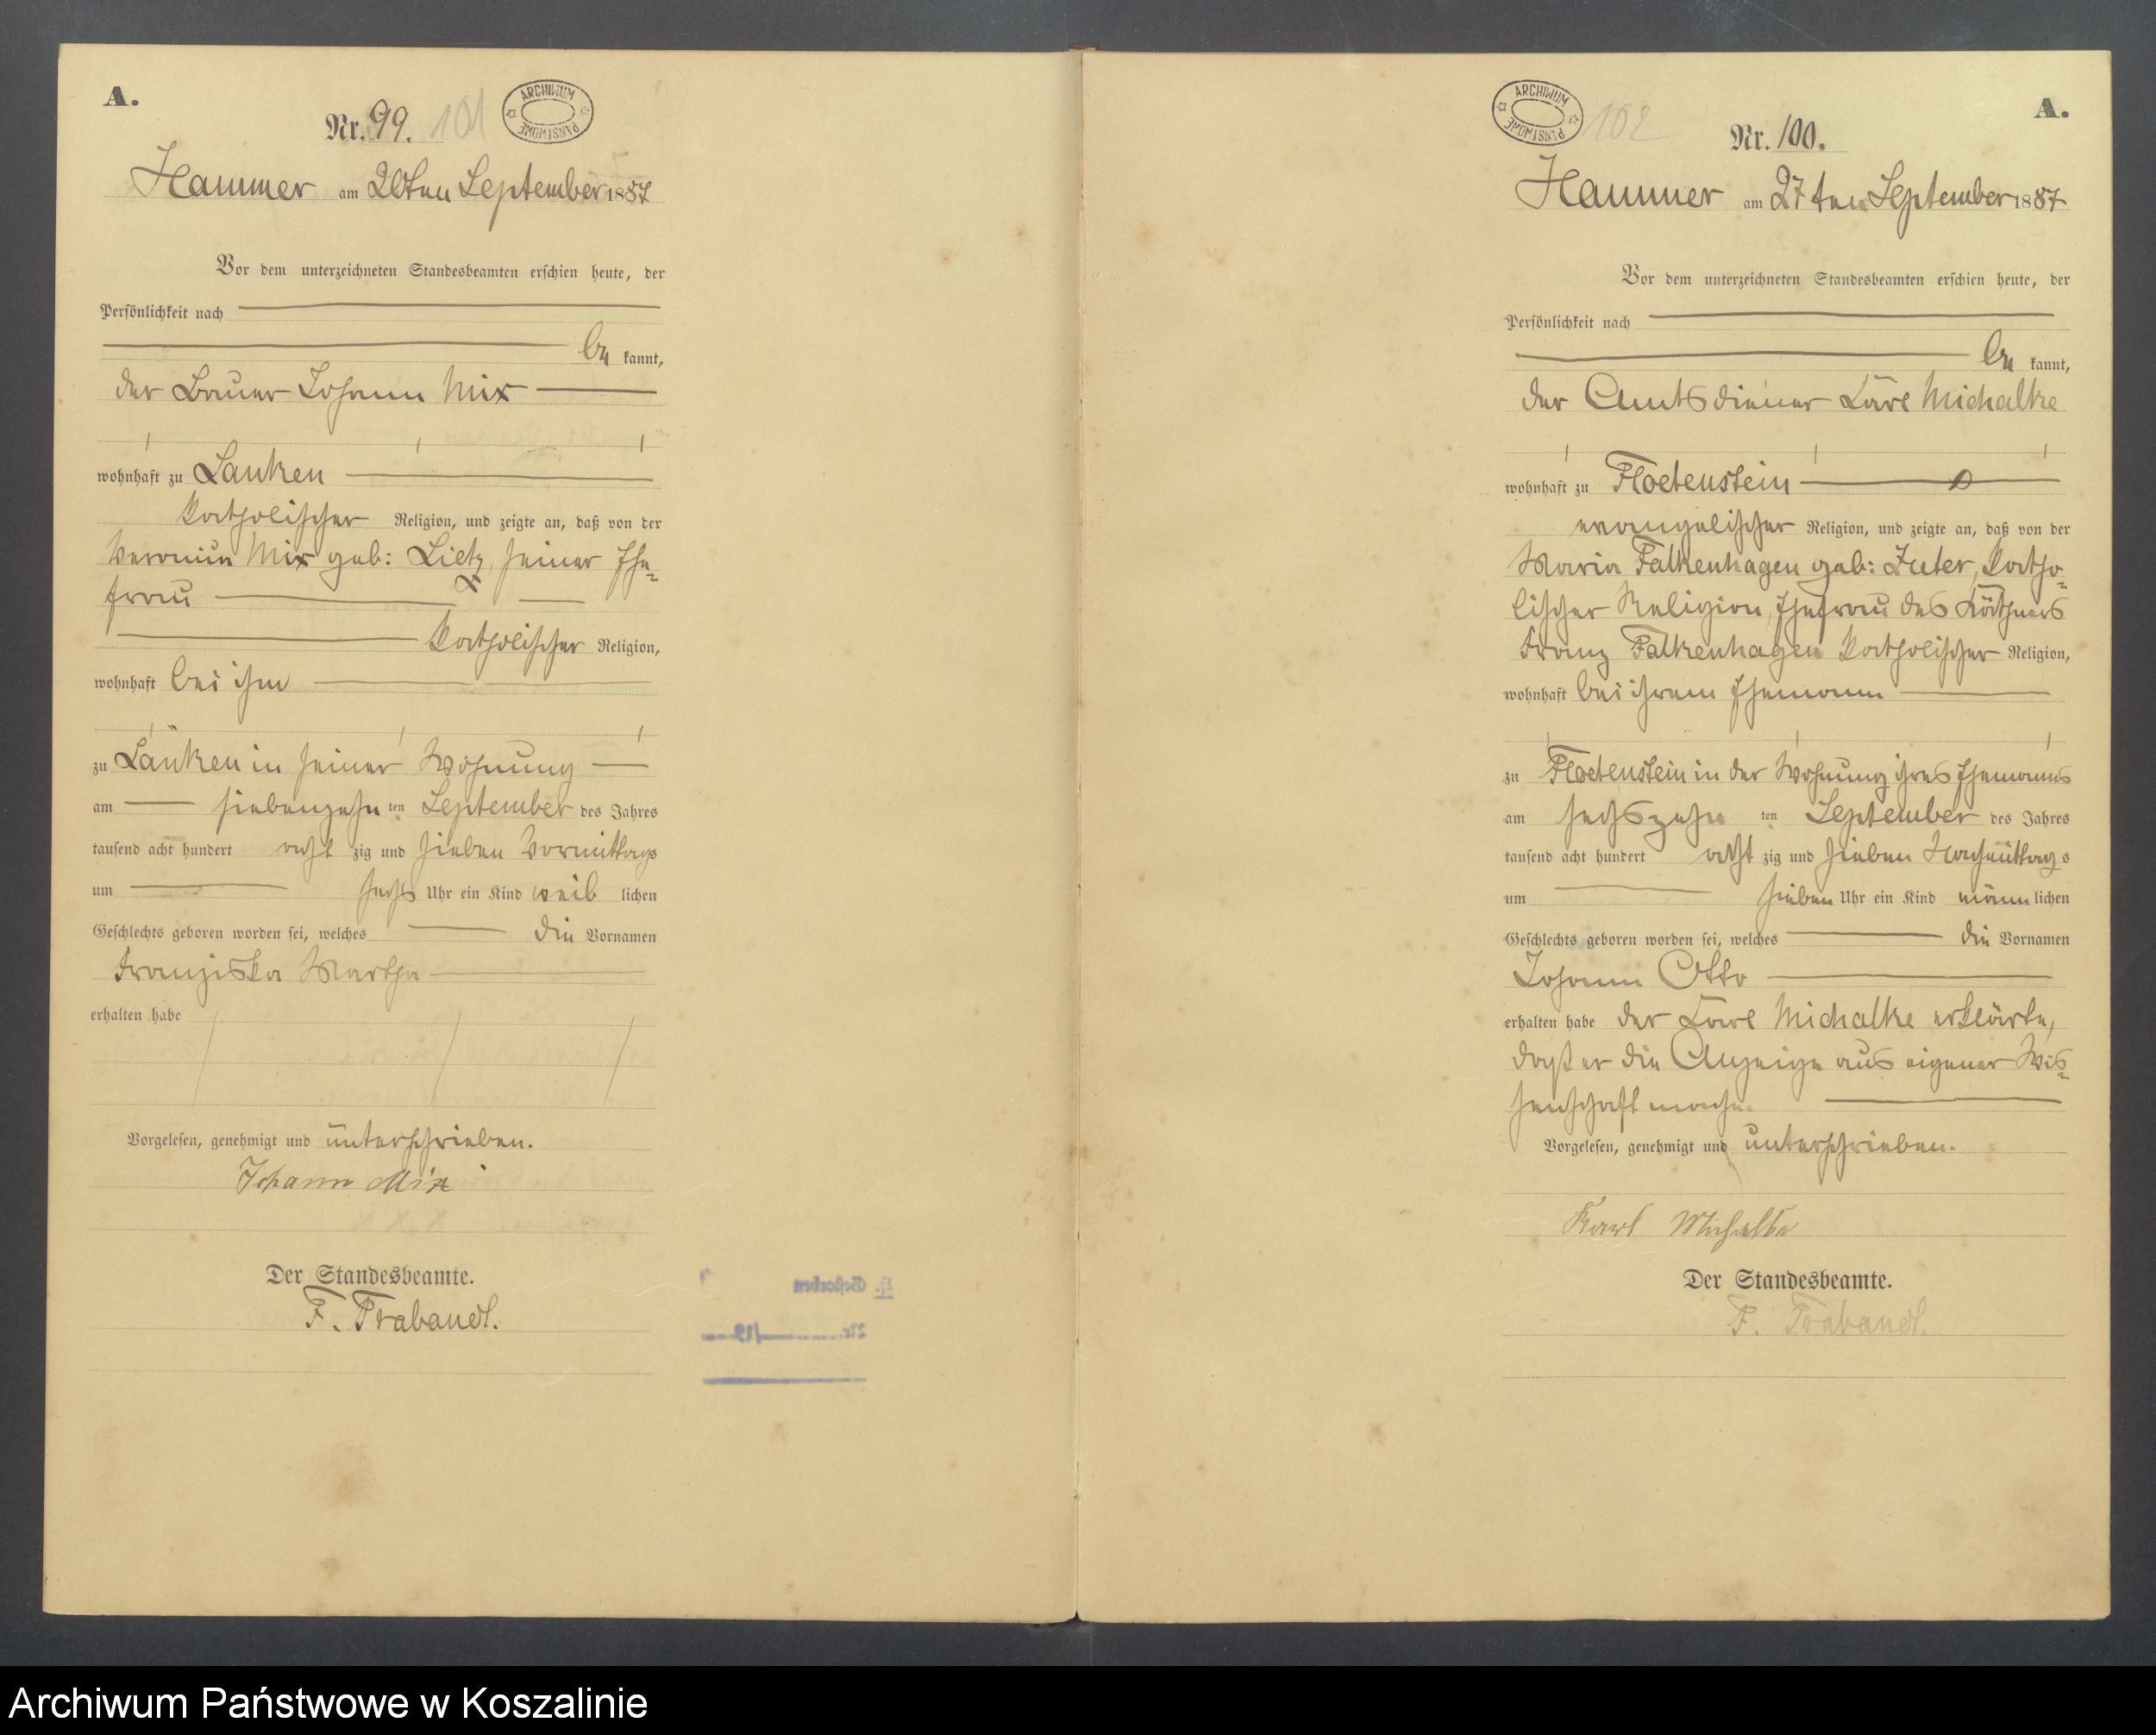 A.
Nr. 99. 101
ARCHIWUM PAŃSTWOWE
Hammer am 20ten September 1887
Vor dem unterzeichneten Standesbeamten erschien heute, der
Persönlichkeit nach
be kannt,
der Bauer Johann Mix
wohnhaft zu Lanken
katholischer Religion, und zeigte an, daß von der
Veronica Mix geb: Lietz, seiner Ehe-
frau
katholischer Religion,
wohnhaft bei ihm
zu Lanken in seiner Wohnung
am siebenzehn ten September des Jahres
tausend acht hundert acht zig und sieben Vormittags
um sechs Uhr ein Kind weib lichen
Geschlechts geboren worden sei, welches die Vornamen
Franziska Martha
erhalten habe
Vorgelesen, genehmigt und unterschrieben.
Johann Mix
Der Standesbeamte.
F. Trabandt.
Gestorben
Nr. /19
A.
ARCHIWUM PAŃSTWOWE
102 Nr. 100.
Hammer am 27ten September 1887
Vor dem unterzeichneten Standesbeamten erschien heute, der
Persönlichkeit nach
be kannt,
der Amtsdiener Karl Michalke
wohnhaft zu Floetenstein
evangelischer Religion, und zeigte an, daß von der
Maria Falkenhagen geb: Juter, katho-
lischer Religion, Ehefrau des Käthners
Franz Falkenhagen katholischer Religion,
wohnhaft bei ihrem Ehemann
zu Floetenstein in der Wohnung ihres Ehemanns
am sechszehn ten September des Jahres
tausend acht hundert acht zig und sieben Nachmittags
um sieben Uhr ein Kind männ lichen
Geschlechts geboren worden sei, welches die Vornamen
Johann Otto
erhalten habe der Karl Michalke erklärte,
daß er die Anzeige aus eigener Wis-
senschaft mache.
Vorgelesen, genehmigt und unterschrieben.
Karl Michalke
Der Standesbeamte.
F. Trabandt.
Archiwum Państwowe w Koszalinie